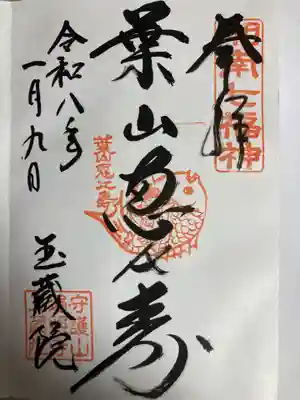 奉拝
湘南七福神
葉山恵比寿
葉山恵比寿
令和八年
一月九日
玉蔵院
守護山